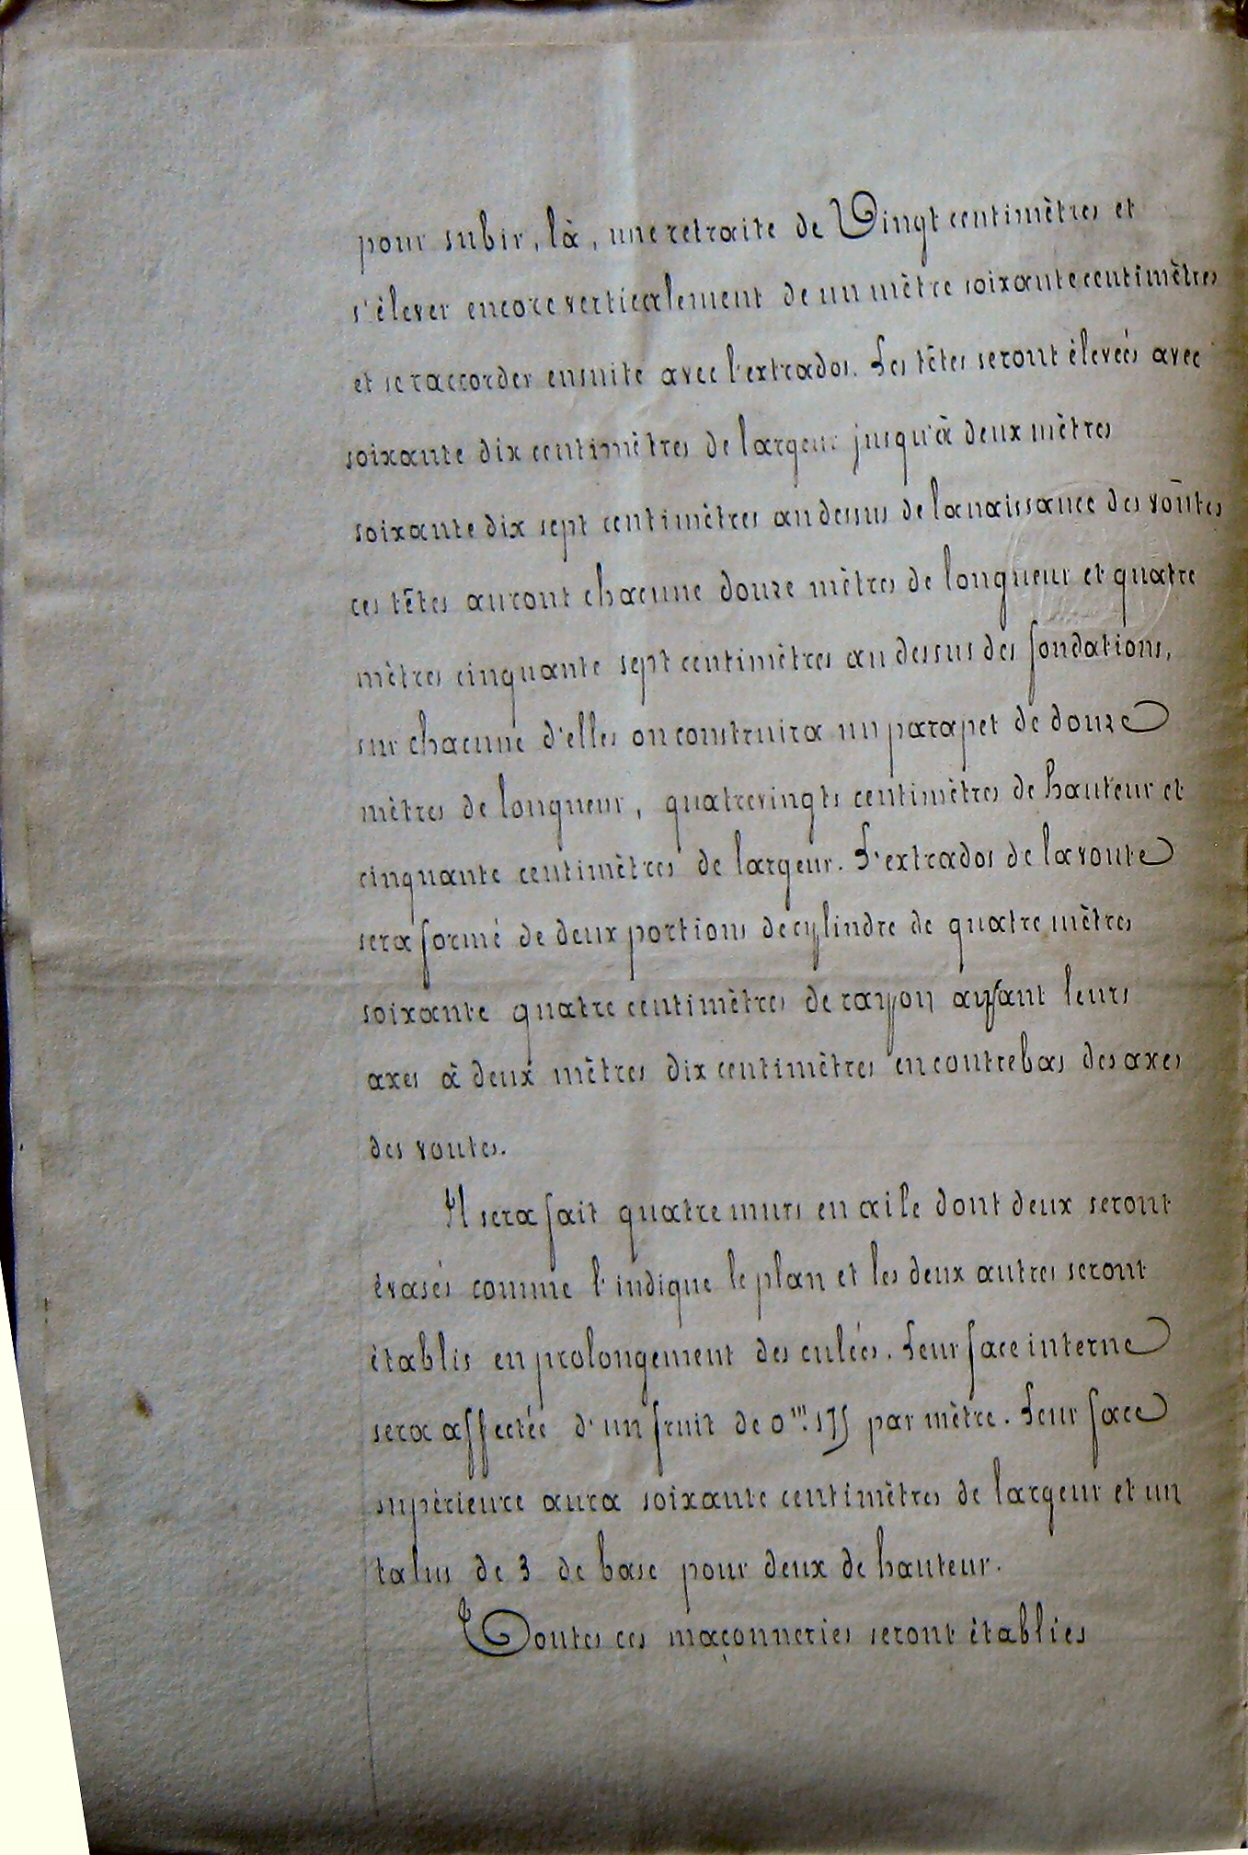 pour subir, là, une retraite de Vingt centimètres et
s'élever encore verticalement de un mètre soixante centimètres
et se raccorder ensuite avec l'extrados. Les têtes seront élevées avec
soixante dix centimètres de largeur jusqu'à deux mètres
soixante dix sept centimètres au dessus de la naissance des voûtes
ces têtes auront chacune douze mètres de longueur et quatre
mètres cinquante sept centimètres au dessus des fondations,
sur chacune d'elles on construira un parapet de douze
mètres de longueur, quatrevingts centimètres de hauteur et
cinquante centimètres de largeur. L'extrados de la voute
sera formé de deux portions de cylindre de quatre mètres
soixante quatre centimètres de rayon ayant leurs
axes à deux mètres dix centimètres en contrebas des axes
des voutes.
Il sera fait quatre murs en aile dont deux seront
évasés comme l'indique le plan et les deux autres seront
établis en prolongement des culées. Leur face interne
sera affectée d'un fruit de 0m.175 par mètre. Leur face
supérieure aura soixante centimètres de largeur et un
talus de 3 de base pour deux de hauteur.
Toutes ces maçonneries seront établies